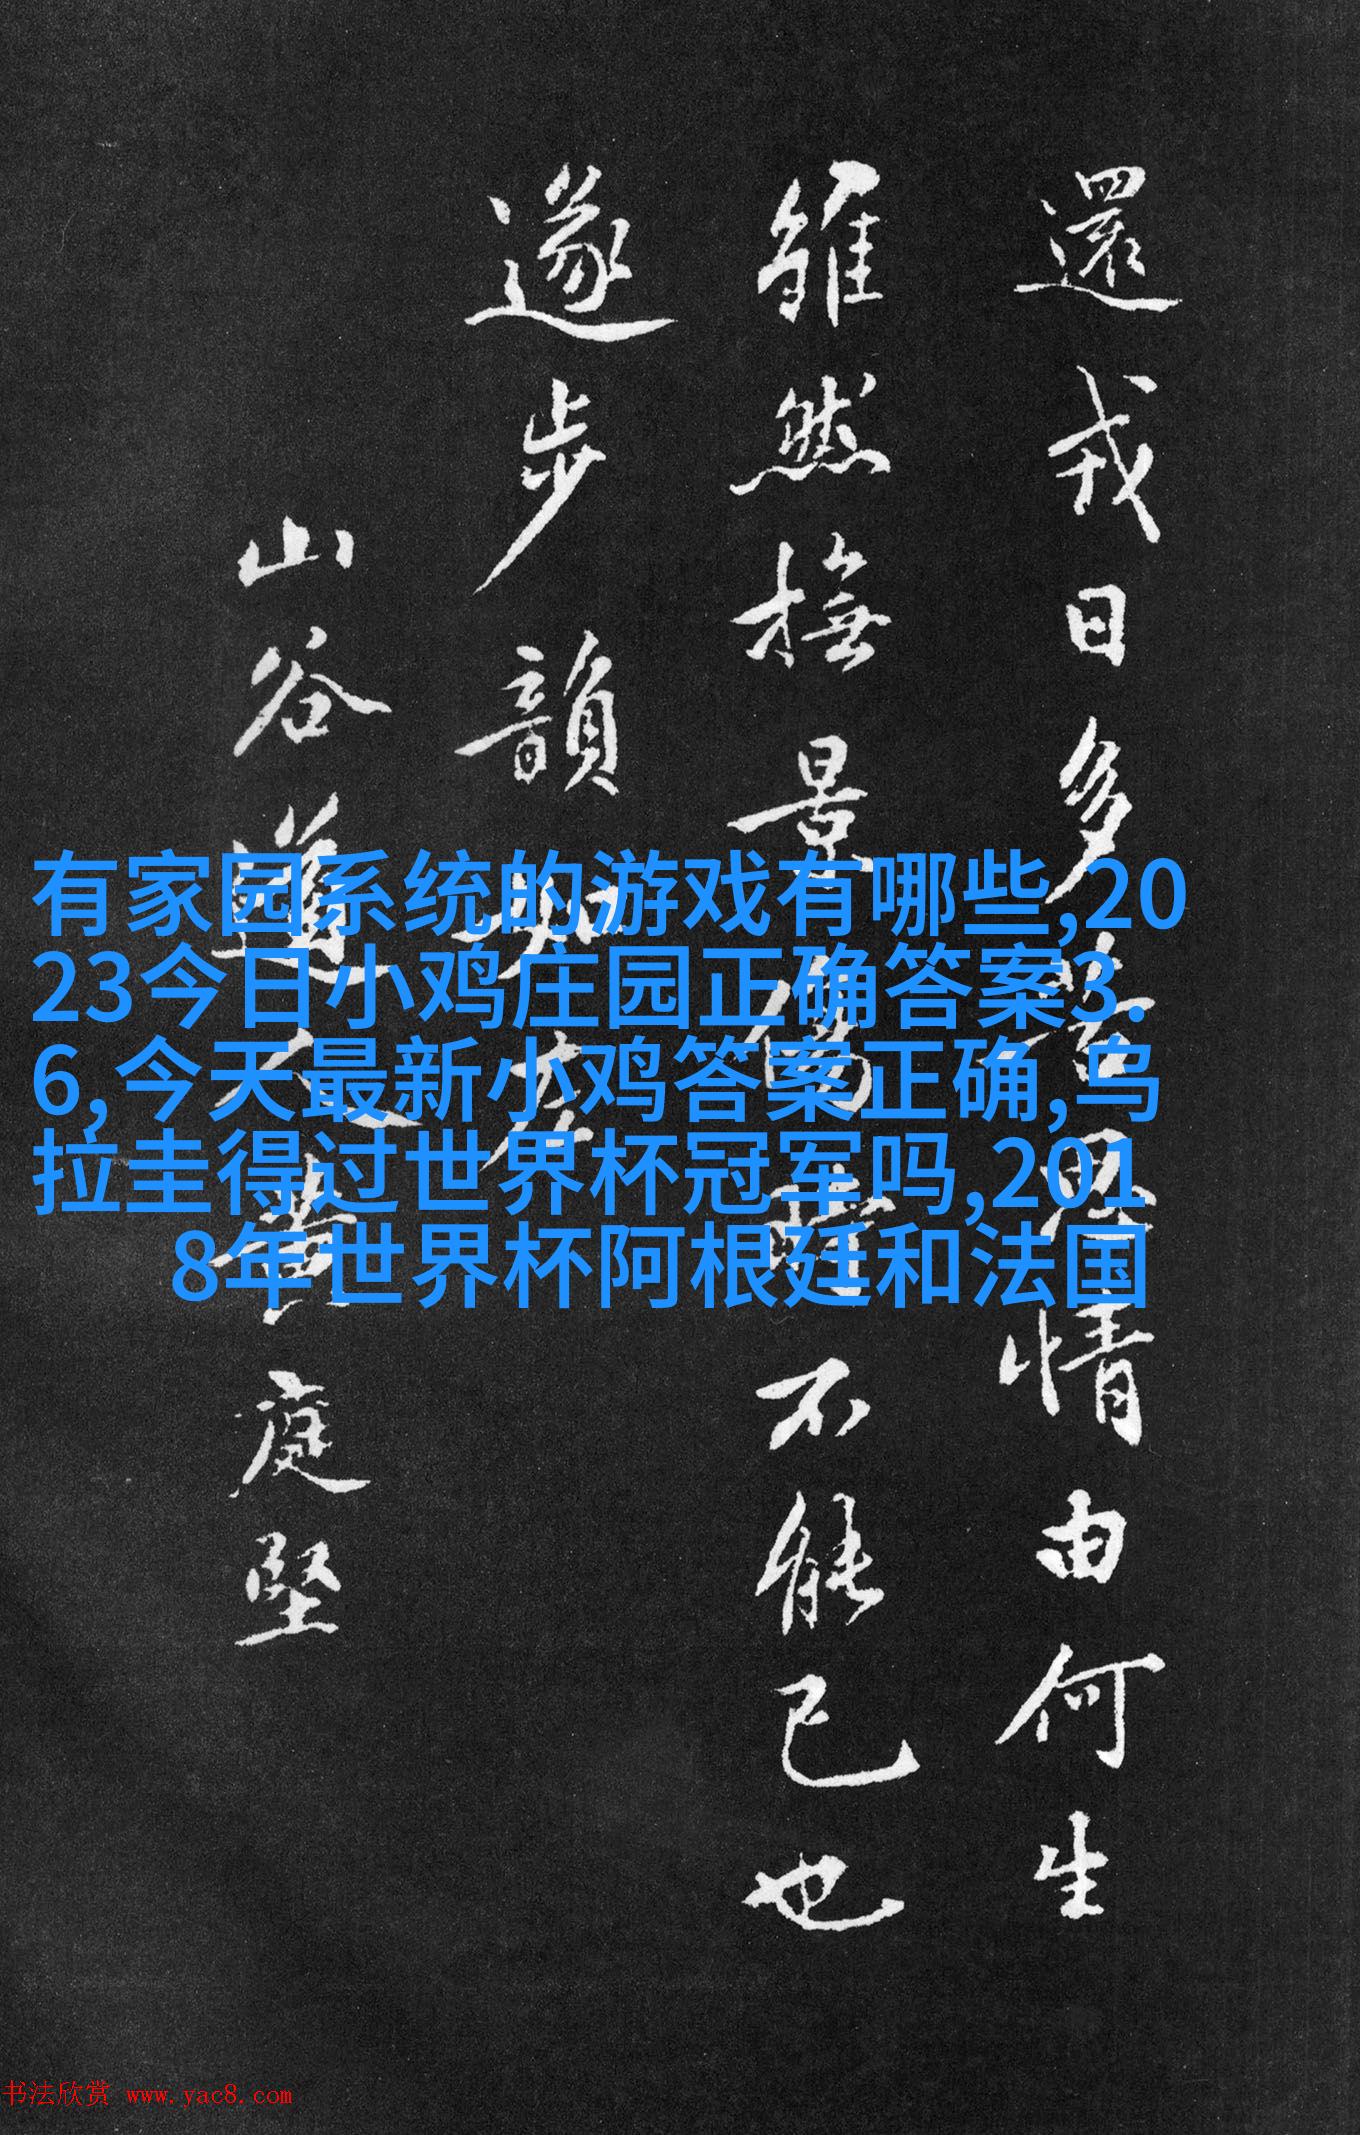 還戎日多思情由何生
雖然撫景傷不能已也
遂步韻如左
山谷道人黃庭堅
有家园系统的游戏有哪些,20
23今日小鸡庄园正确答案3.
6,今天最新小鸡答案正确,乌
拉圭得过世界杯冠军吗,201
8年世界杯阿根廷和法国
书法欣赏 www.yac8.com